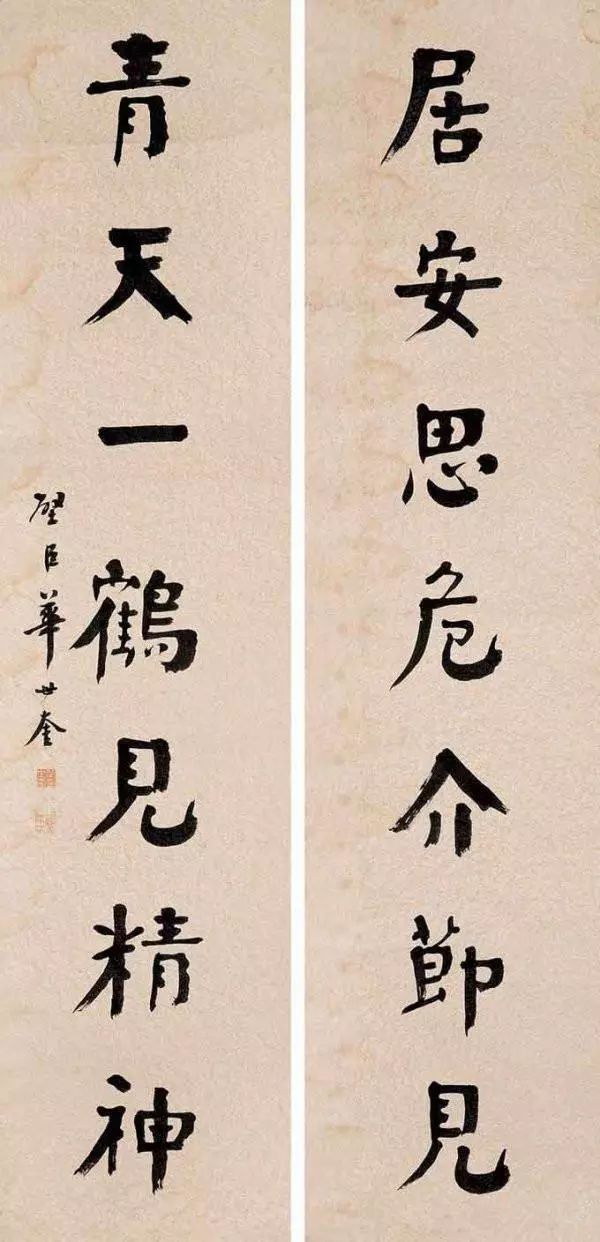 居安思危介節見
青天一鶴見精神
璧臣華世奎